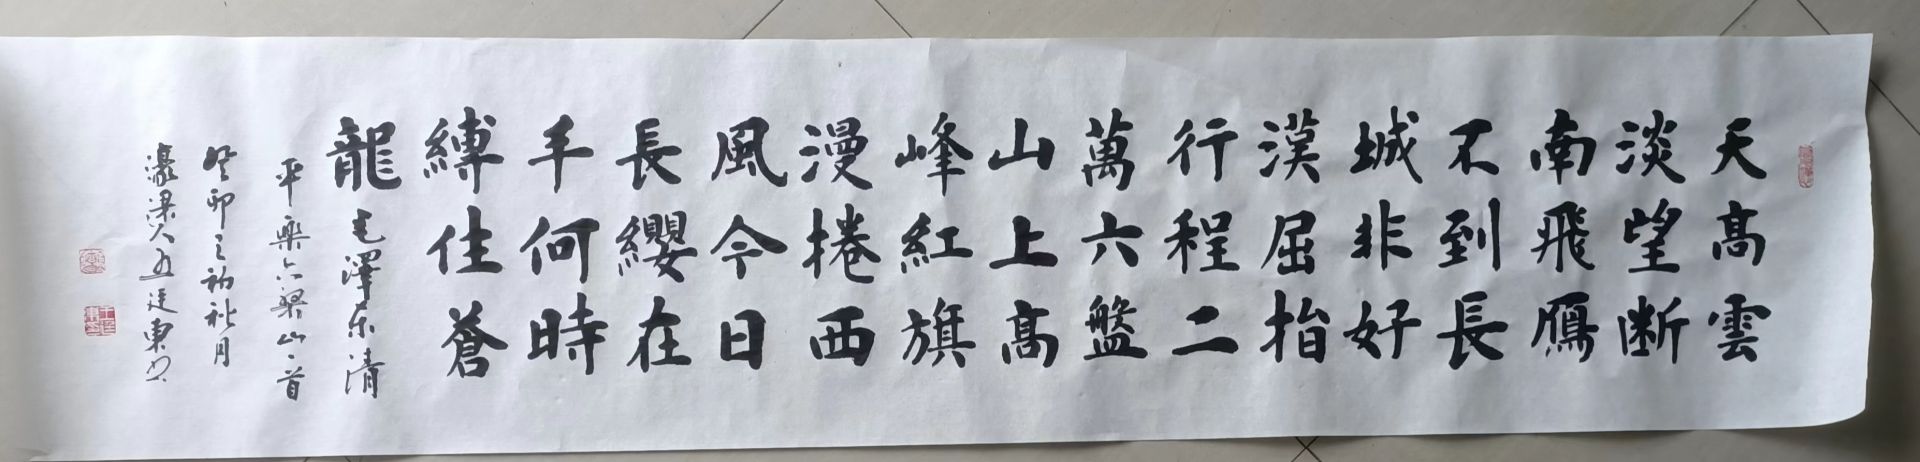 天高雲
淡望断
南飛鴈
不到長
城非好
漢屈指
行程二
萬六盤
山上高
峰紅旗
漫捲西
風今日
長纓在
手何時
縛住蒼
龍毛澤东清
平樂六槃山一首
癸卯之初秋月